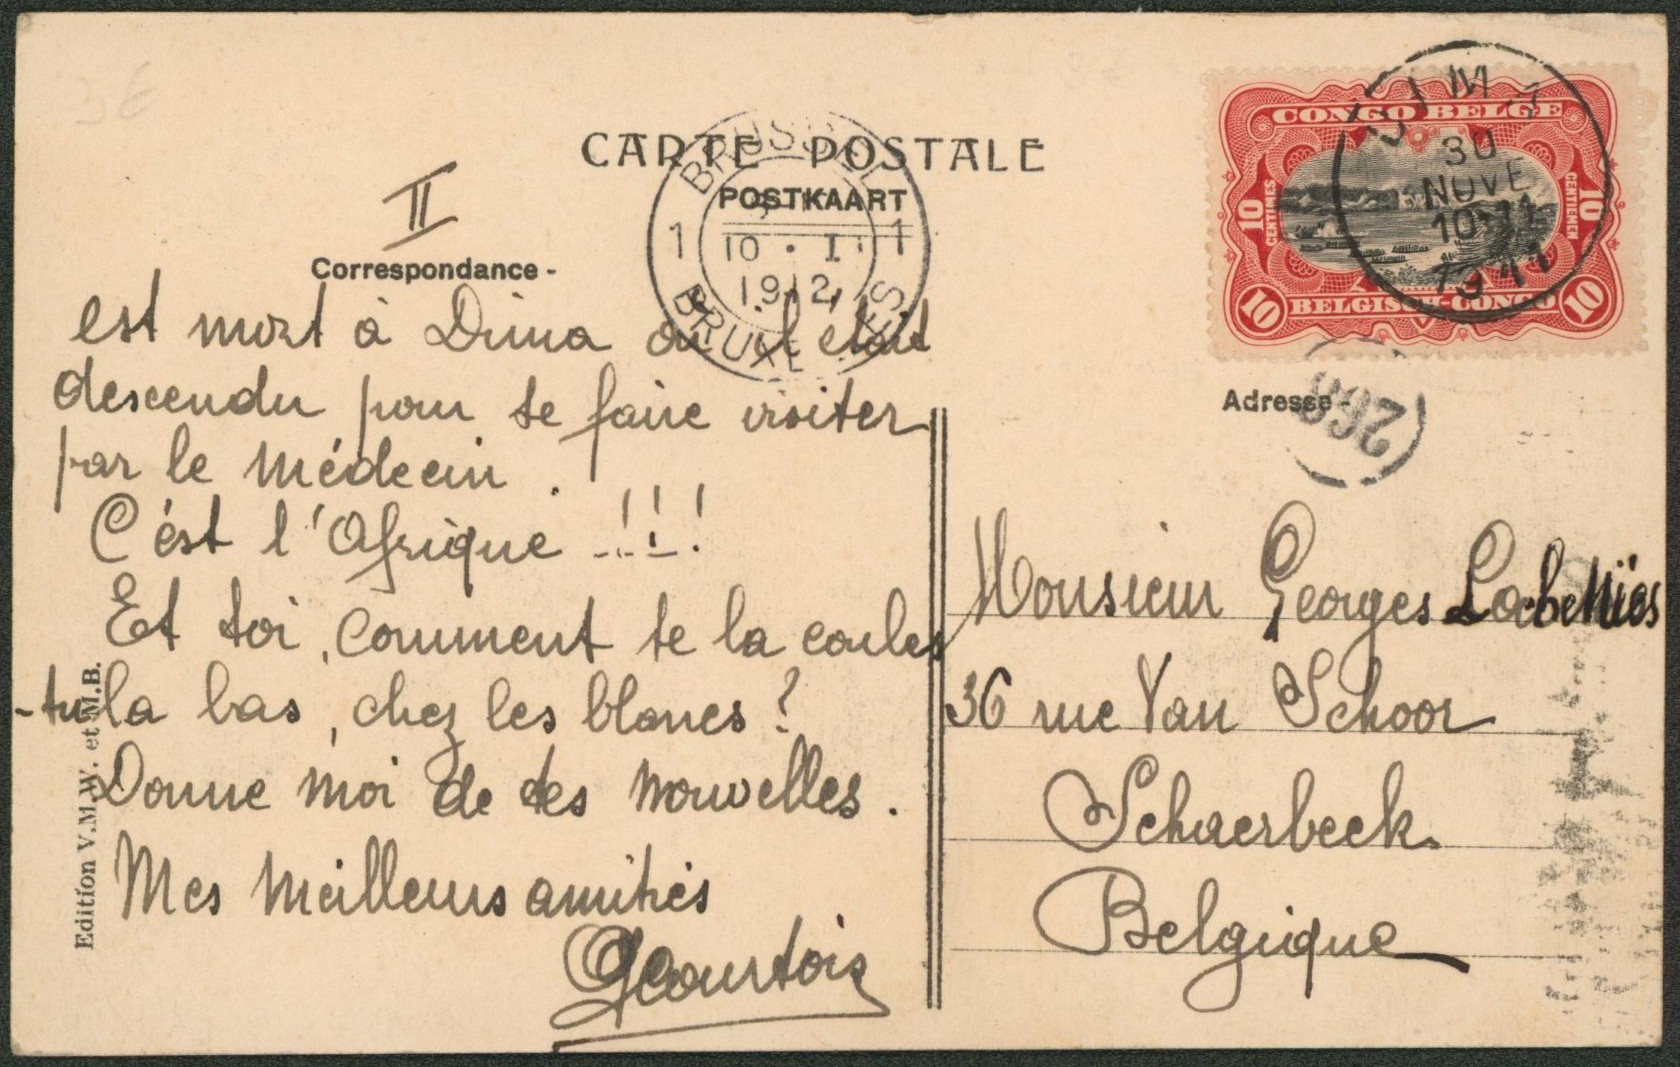 3€
CARTE POSTALE
POSTKAART
II
Correspondance -
BRUSSEL
1 10 · I · 1
1912
BRUXELLES
CONGO BELGE
10 CENTIMES
10 CENTIEMEN
10 BELGISCH-CONGO 10
DIMA
30
NOVE
10-11
1911
est mort à Dima où il était
descendu pour se faire visiter
par le médecin.
C'est l'Afrique !!!
Et toi, comment te la coules
-tu la bas, chez les blancs ?
Donne moi de tes nouvelles.
Mes meilleurs amitiés
GCourtois
Edition V.M.W. et M.B.
Adresse -
Monsieur Georges
36 rue Van Schoor
Schaerbeek.
Belgique